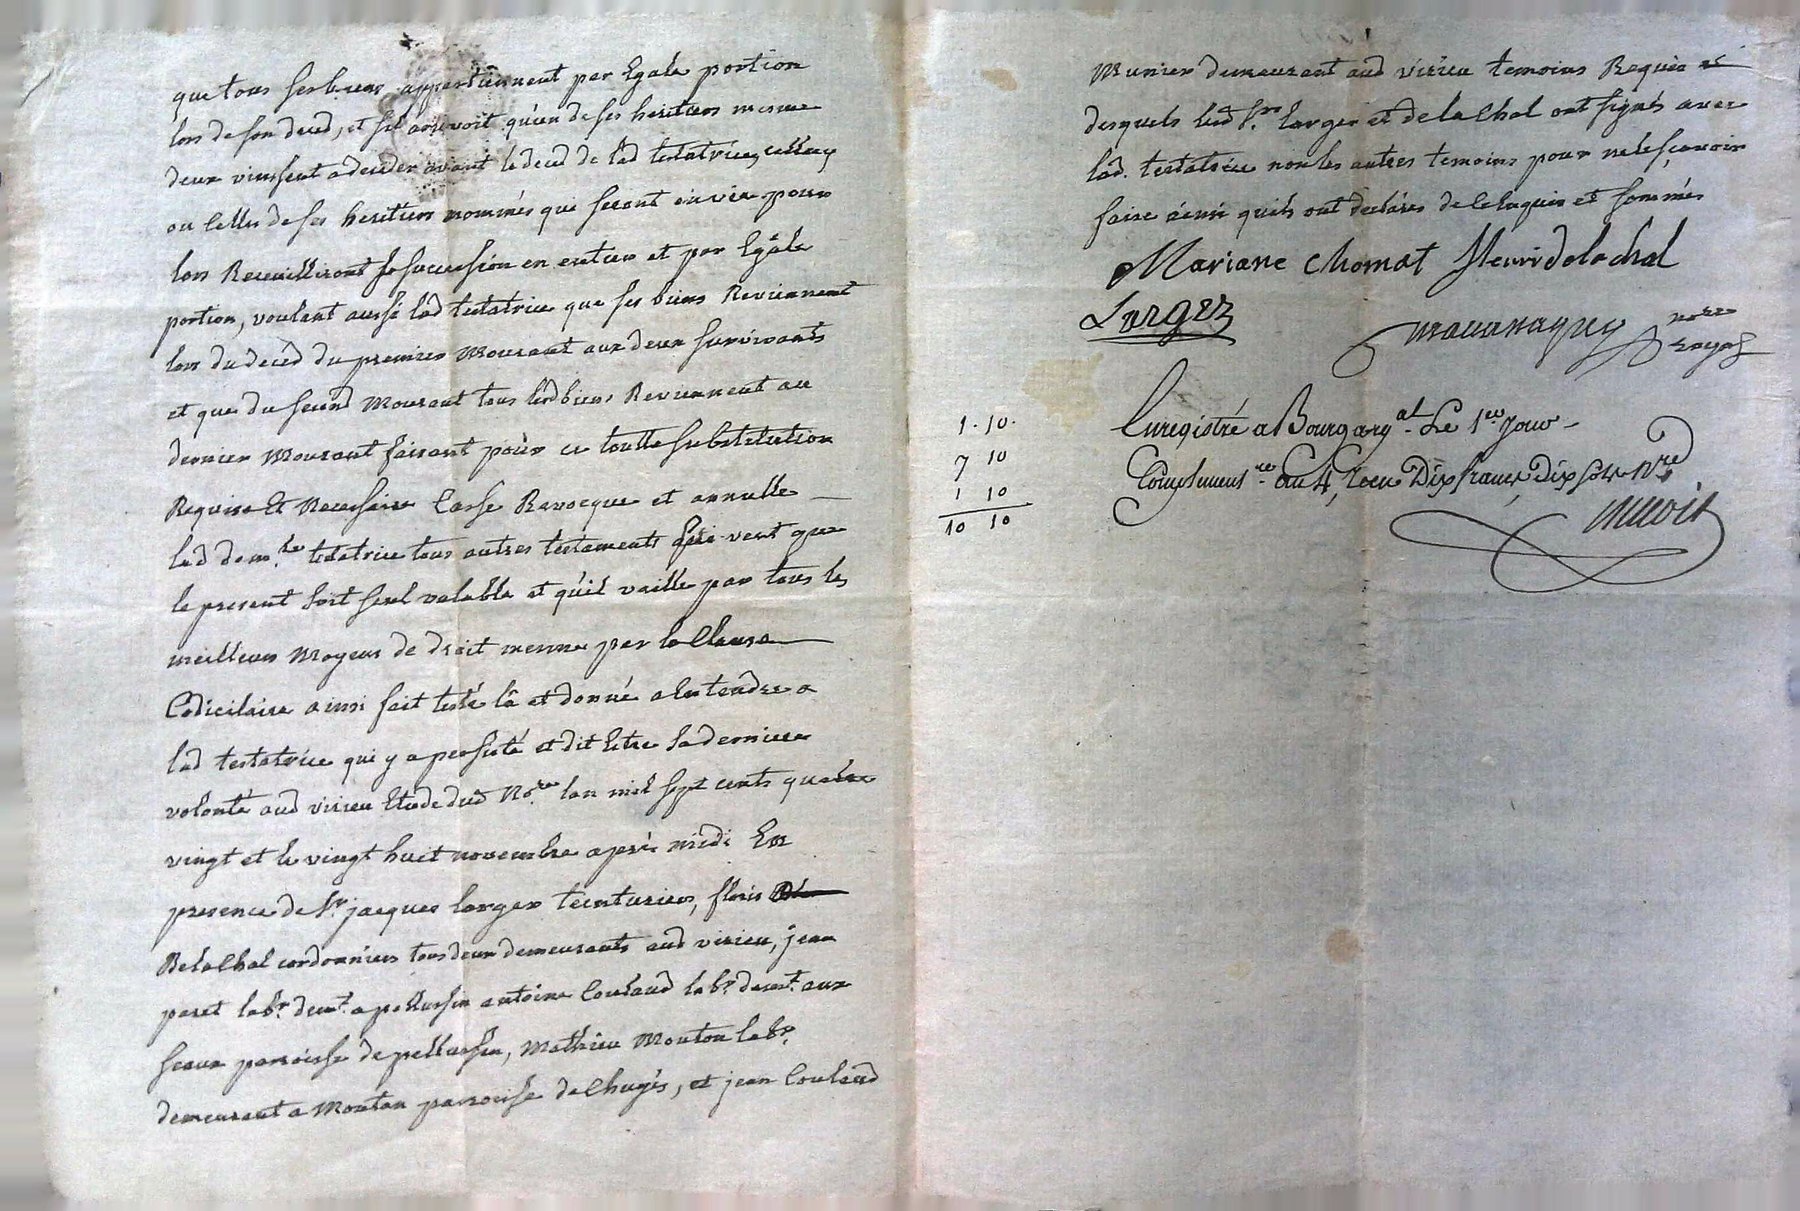 que tous ses biens appartiennent par Egale portion
lors de son deced, et s'il arrivoit qu'un de ses heritiers mesme
deux vinssent a deceder avant le deced de lad testatrice, celluy
ou Celles de ses heritiers nommés que seront en vie pour
lors Recueilliront sa succession en entier et par Egale
portion, voulant aussi lad testatrice que ses biens Reviennent
lors du deced du premier Mourant aux deux survivants
et que du second Mourant tous lesd biens Reviennent au
dernier Mourant faisant pour ce toutte substitution
Requise Et Necessaire Casse Revocque et annulle
lad dem.lle testatrice tous autres testaments veut que
le present soit seul valable et qu'il vaille par tous les
meilleurs Moyens de droit mesme par la Clause
Codicilaire ainsi fait testé lû et donné a Entendre a
lad testatrice qui y a persisté et dit Estre sa derniere
volonté aud virieu Etude dud No.re lan mil sept cents quatre
vingt et le vingt huit novembre après midi En
presence de Sr. jacques larger teinturier, floris
Delachal cordonniers tous deux demeurants aud virieu, jean
paret labr. demt. a pellussin antoine Couland labr. demt. aux
sceaux paroisse de pellussin, Mathieu Mouton labr.
demeurant a Mouton parroisse de Chuyés, et jean Couland
Munier demeurant aud virieu temoins Requis et
desquels lesd Srs. larger et delachal ont signés avec
lad. testatrice non les autres temoins pour ne le sçavoir
faire ainsi quils ont declarés de ce Enquis et sommés
Mariane Chomat fleuri delachal
Larger
nore
royal
1. 10. Enregistré a Bourgargal. Le 1er Jour
7 10 Complementre. au 4, Reçu Dix francs Dix sols
1 10
10 10